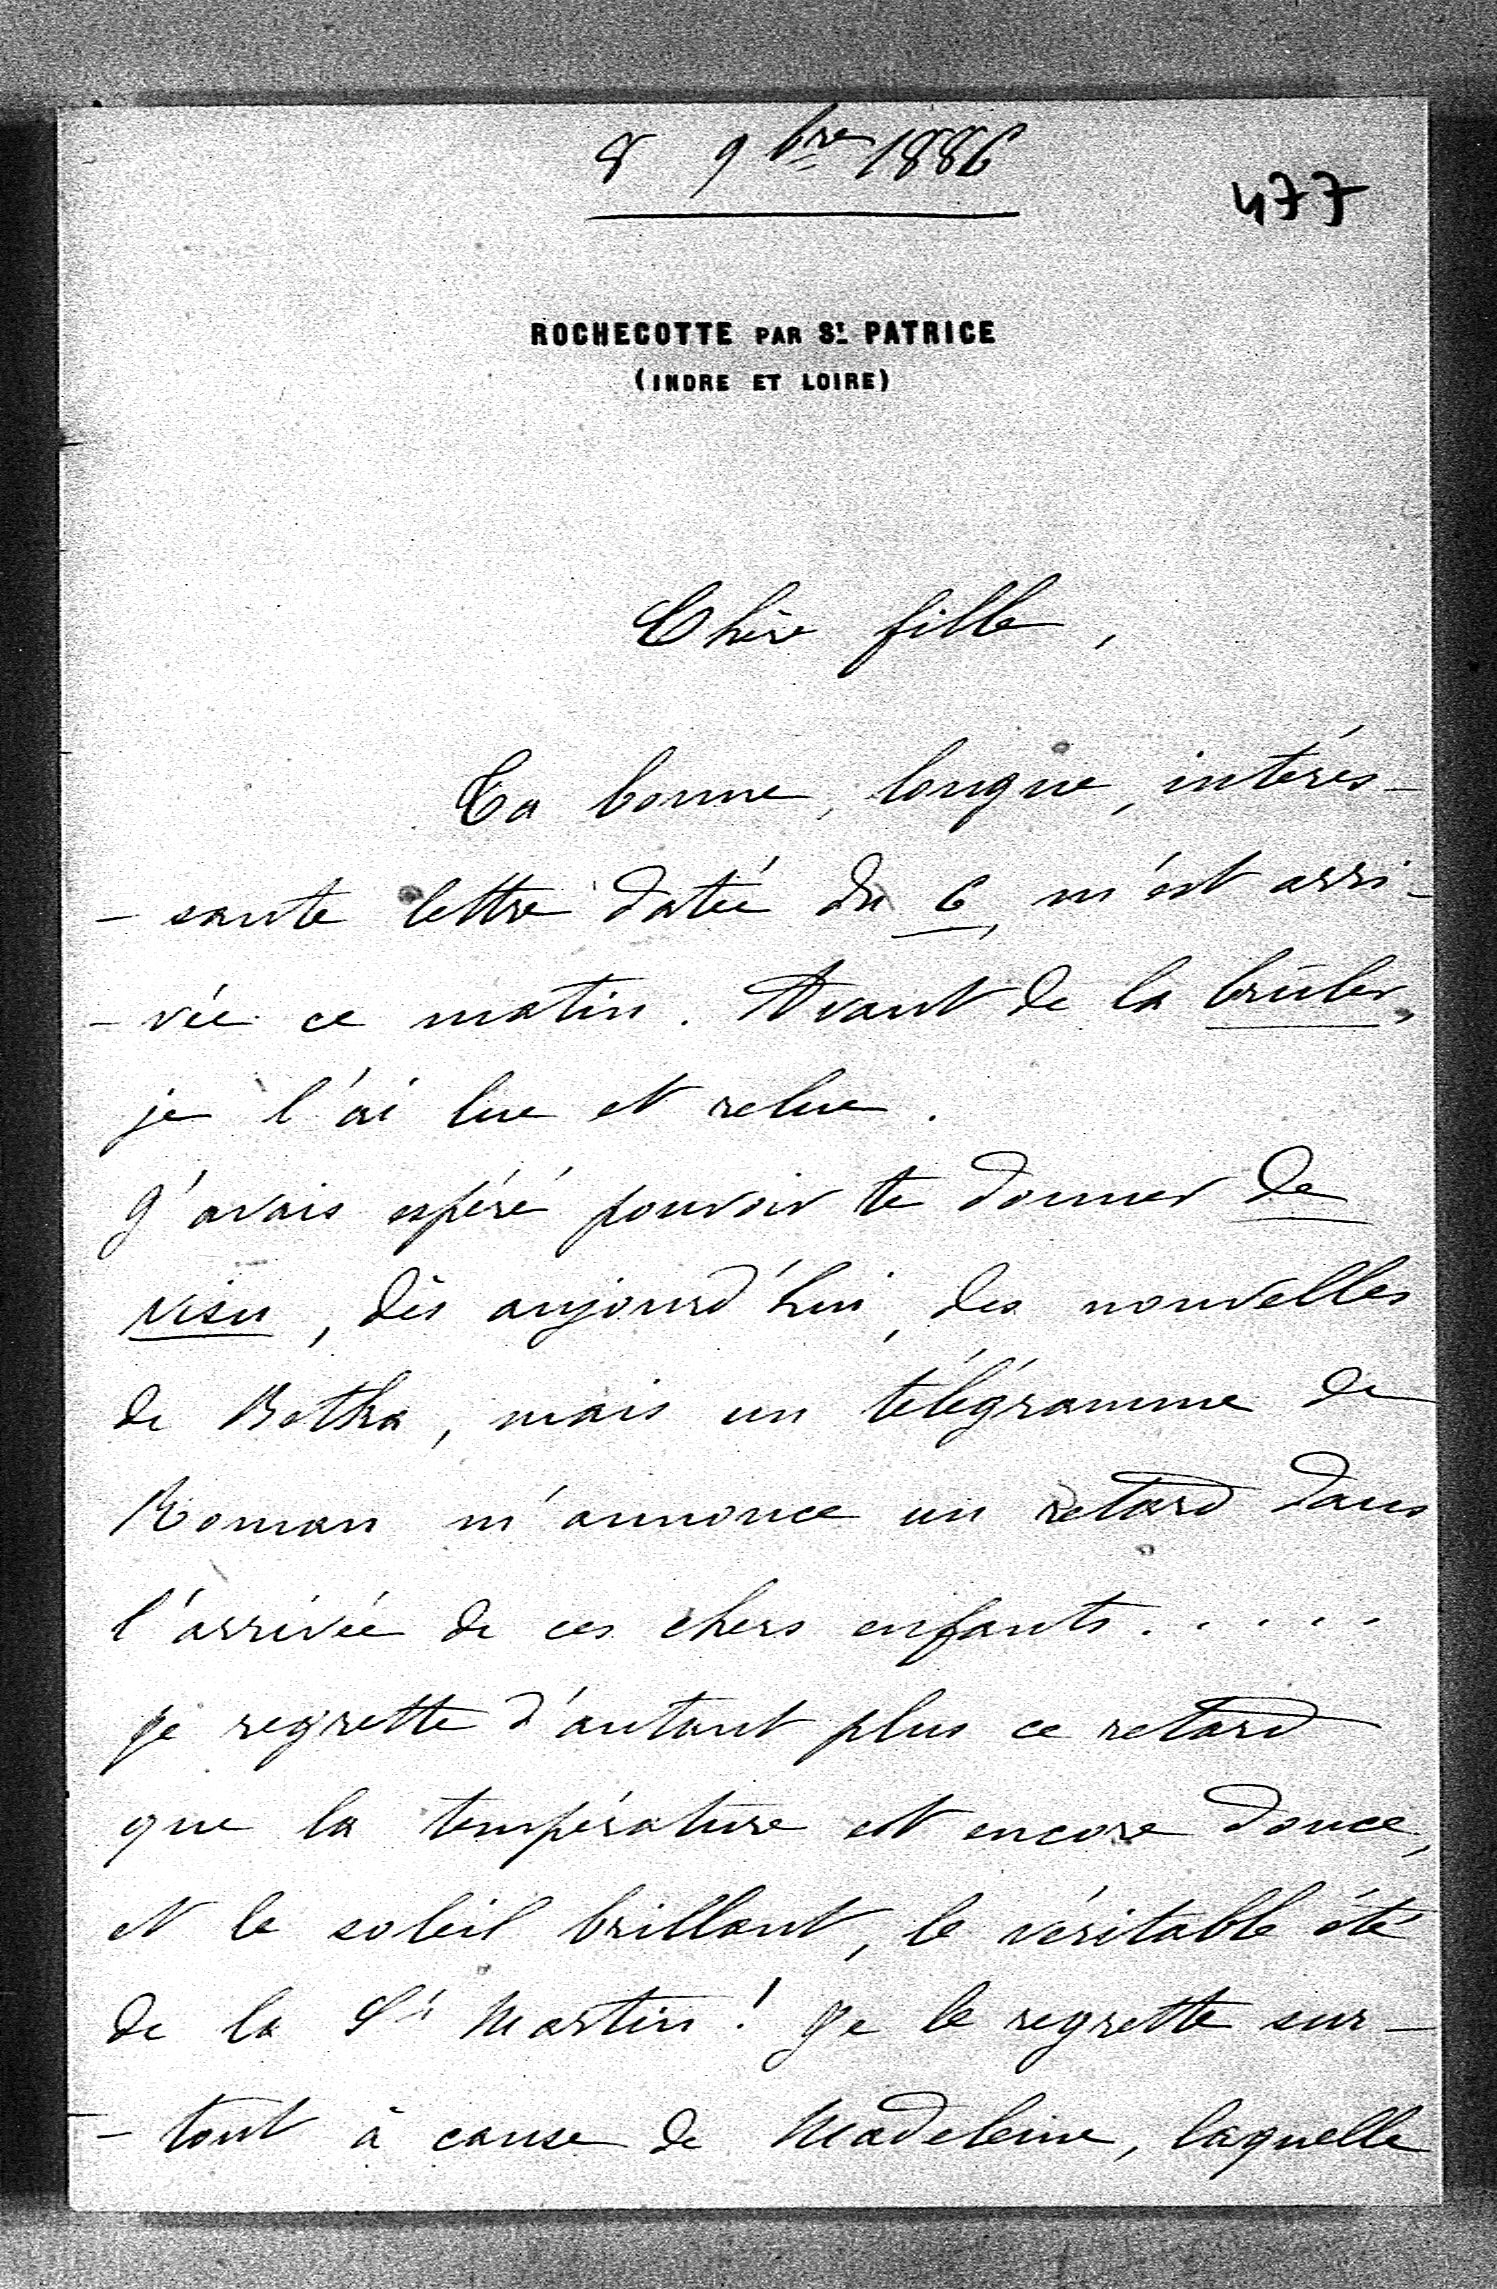 8 9bre 1886
477
ROCHECOTTE PAR ST PATRICE
(INDRE ET LOIRE)
Chère fille,
Ta bonne, longue, intéres-
- sante lettre datée du 6, m'est arri-
- vée ce matin. Avant de la brûler,
je l'ai lue et relue.
J'avais espéré pouvoir te donner de
visu, dès aujourd'hui, des nouvelles
de Betka, mais un télégramme de
Roman m'annonce un retard dans
l'arrivée de ces chers enfants.....
Je regrette d'autant plus ce retard
que la température est encore douce,
et le soleil brillant, le véritable été
de la St Martin! Je le regrette sur-
- tout à cause de Madeleine, laquelle